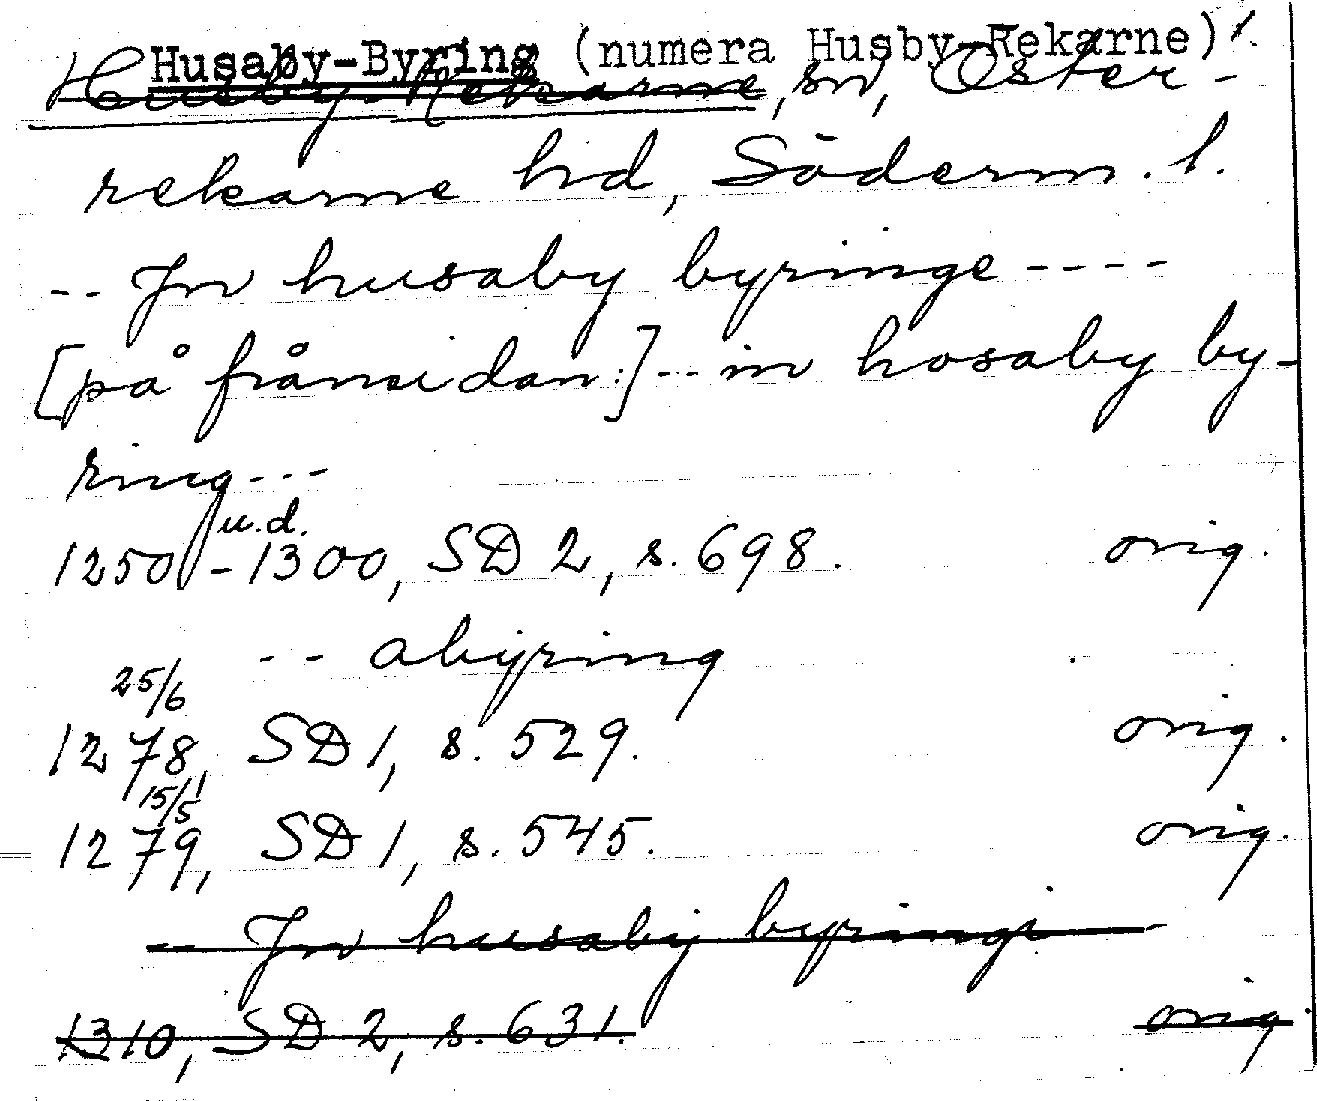 Husaby-Byring (numera Husby-Rekarne)
Husby-Rekarne, sn, Öster-
rekarne hd, Söderm. l.
-- Jn husaby byringe ----
[på frånsidan:] -- in hosaby by-
ring ---
u.d.
1250 - 1300, SD 2, s. 698. orig.
-- abyring
25/6
1278, SD 1, s. 529. orig.
15/5
1279, SD 1, s. 545. orig.
-- Jn husaby byringe -
1310, SD 2, s. 631. orig.